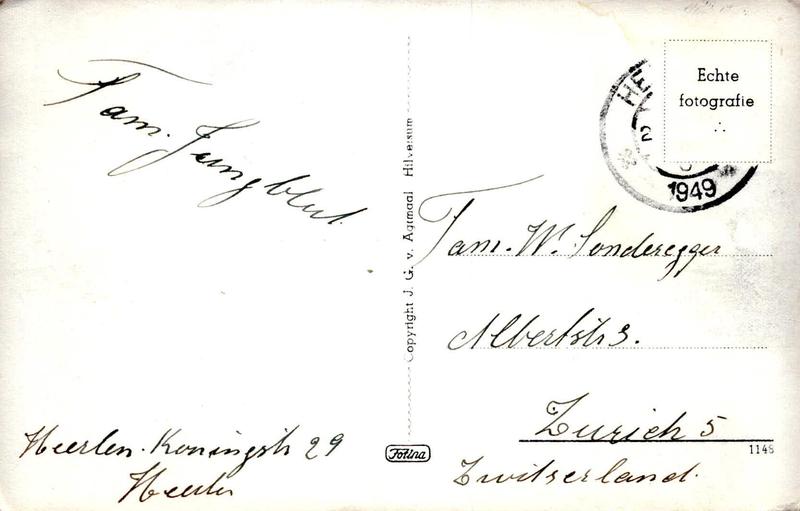 Fam. Jungblut.
Heerlen. Koningstr 29
Heerlen
Copyright J. G. v. Agtmaal Hilversum
Fotina
Echte
fotografie
1949
Fam. W. Sonderegger
Albertstr 3.
Zurich 5
Zwitserland.
1148